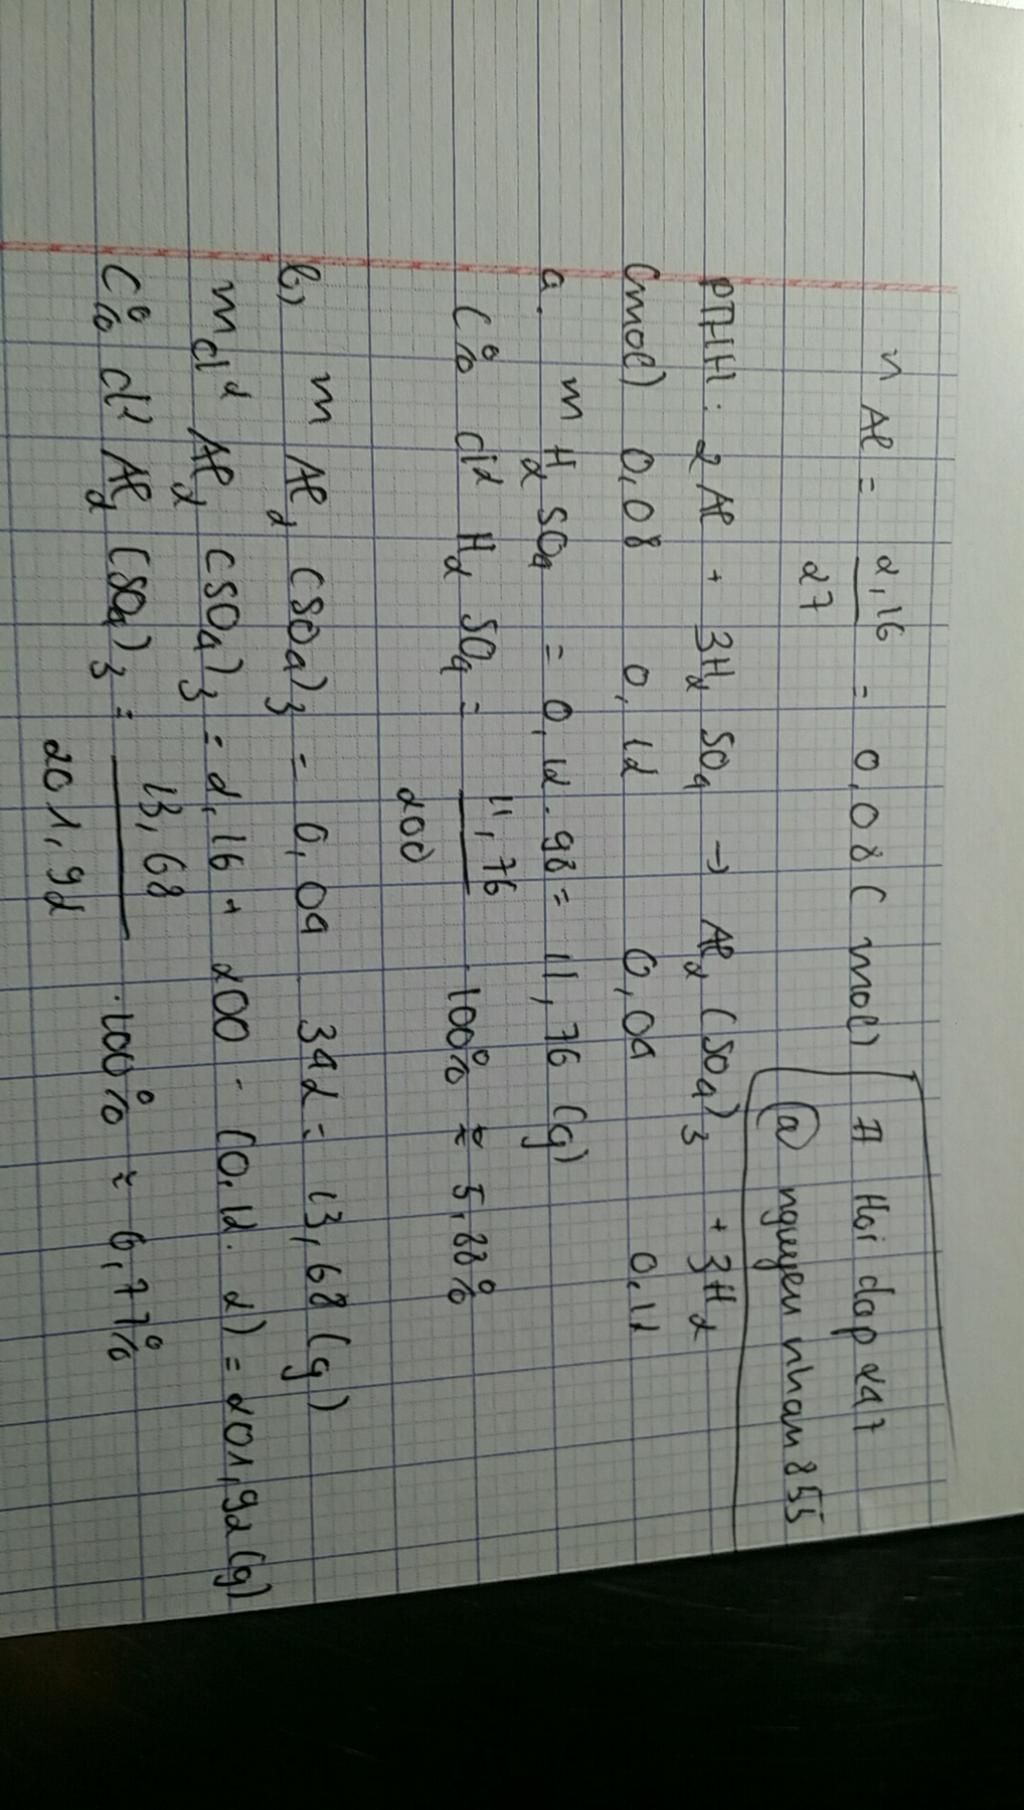 n Al = 2,16 / 27 = 0,08 (mol)
# Hoi dap 247
@ nguyen nhan 855
PTHH: 2Al + 3H2SO4 → Al2(SO4)3 + 3H2
(mol) 0,08 0,12 0,04 0,12
a. m H2SO4 = 0,12.98 = 11,76 (g)
C% dd H2SO4 = 11,76 / 200 .100% ≈ 5,88%
b) m Al2(SO4)3 = 0,04.342 = 13,68 (g)
mdd Al2(SO4)3 = 2,16 + 200 - (0,12.2) = 201,92 (g)
C% dd Al2(SO4)3 = 13,68 / 201,92 .100% ≈ 6,77%